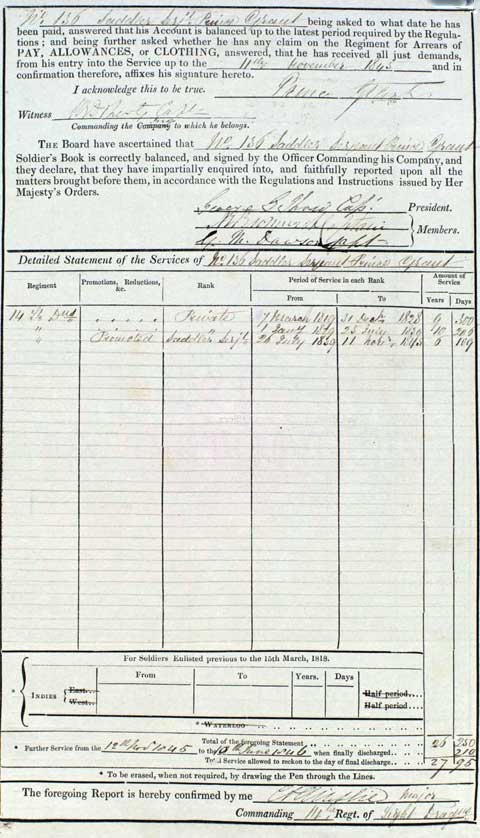 No. 136 Saddler Serjt. Prince Grant being asked to what date he has
been paid, answered that his Account is balanced up to the latest period required by the Regula-
tions; and being further asked whether he has any claim on the Regiment for Arrears of
PAY, ALLOWANCES, or CLOTHING, answered, that he has received all just demands,
from his entry into the Service up to the 11th November 1845 and in
confirmation therefore, affixes his signature hereto.
I acknowledge this to be true. Prince Grant
Witness Capt
Commanding the Company to which he belongs.
THE Board have ascertained that No. 136 Saddler Serjeant Prince Grant
Soldier's Book is correctly balanced, and signed by the Officer Commanding his Company, and
they declare, that they have impartially enquired into, and faithfully reported upon all the
matters brought before them, in accordance with the Regulations and Instructions issued by Her
Majesty's Orders.
George Capt. President.
Captain } Members.
Dawson Capt
Detailed Statement of the Services of No. 136 Saddler Serjeant Prince Grant
Regiment Promotions, Reductions, &c. Rank Period of Service in each Rank Amount of Service
From To Years Days
14 Lt Dns . . . . . Private 7 March 1819 31 Dec. 1828 9 300
" 1 Jany 1829 25 July 1839 10 206
" Promoted Saddler Serjt. 26 July 1839 11 Novr. 1845 6 109
For Soldiers Enlisted previous to the 15th March, 1818.
From To Years. Days
* INDIES { East... Half period....
West... Half period....
* WATERLOO
Total of the foregoing Statement 26 250
* Further Service from the 12th Nov 1845 to the 10th June 1846 when finally discharged.. 210
Total Service allowed to reckon to the day of final discharge... 27 95
* To be erased, when not required, by drawing the Pen through the Lines.
The foregoing Report is hereby confirmed by me Major
Commanding 14th Regt. of Light Dragns